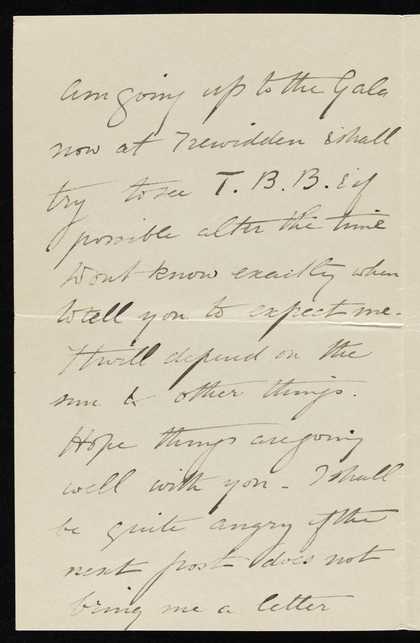 am going up to the Gala
now at Trewidden & shall
try to see T. B. B. & if
possible alter the time
Dont know exactly when
to tell you to expect me.
It will depend on the
sun & other things.
Hope things are going
well with you - I shall
be quite angry if the
next post does not
bring me a letter